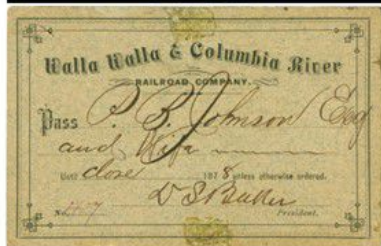 Walla Walla & Columbia River
RAILROAD COMPANY.
Pass P. B. Johnson Esq
and Wife
Until close 1878 unless otherwise ordered.
No.
President.